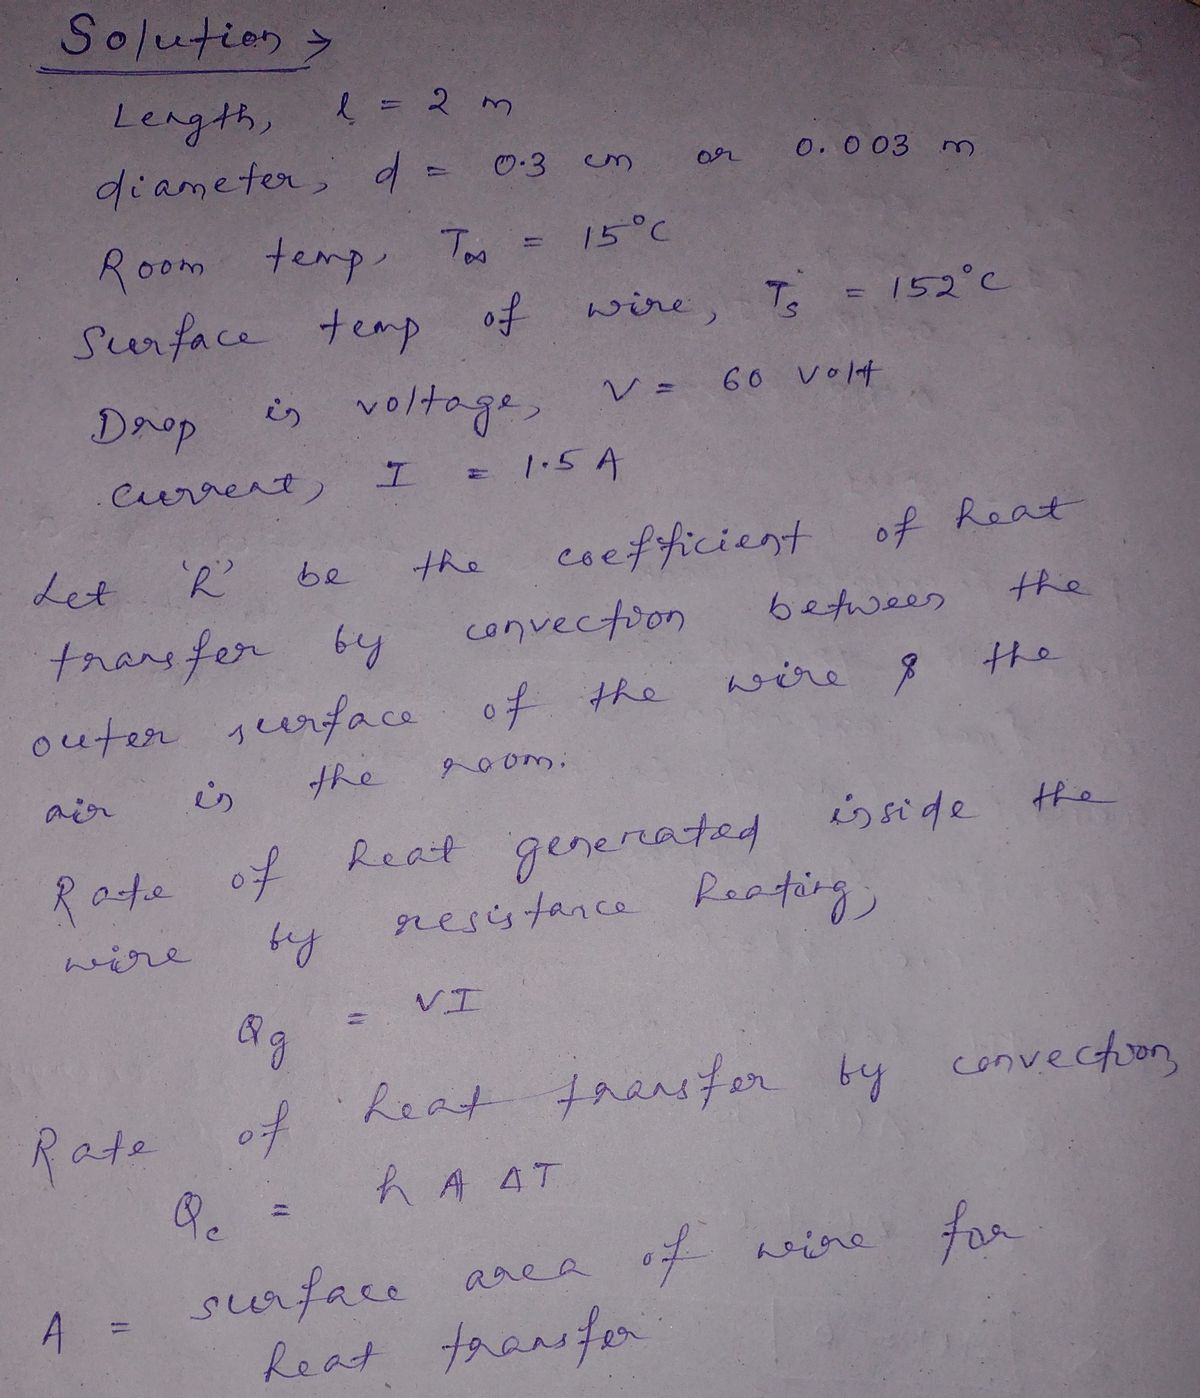 Solution →
Length, l = 2 m
diameter, d = 0.3 cm or 0.003 m
Room temp, T∞ = 15°C
Surface temp of wire, Ts = 152°C
Drop in voltage, V = 60 Volt
Current, I = 1.5 A
Let 'h' be the coefficient of heat
transfer by convection between the
outer surface of the wire & the
air in the room.
Rate of heat generated inside the
wire by resistance heating,
Qg = VI
Rate of heat transfer by convection,
Qc = h A ΔT
A = surface area of wire for
heat transfer